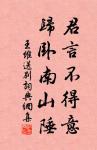 君言不得意
歸卧南山陲
王維送別詞典網集